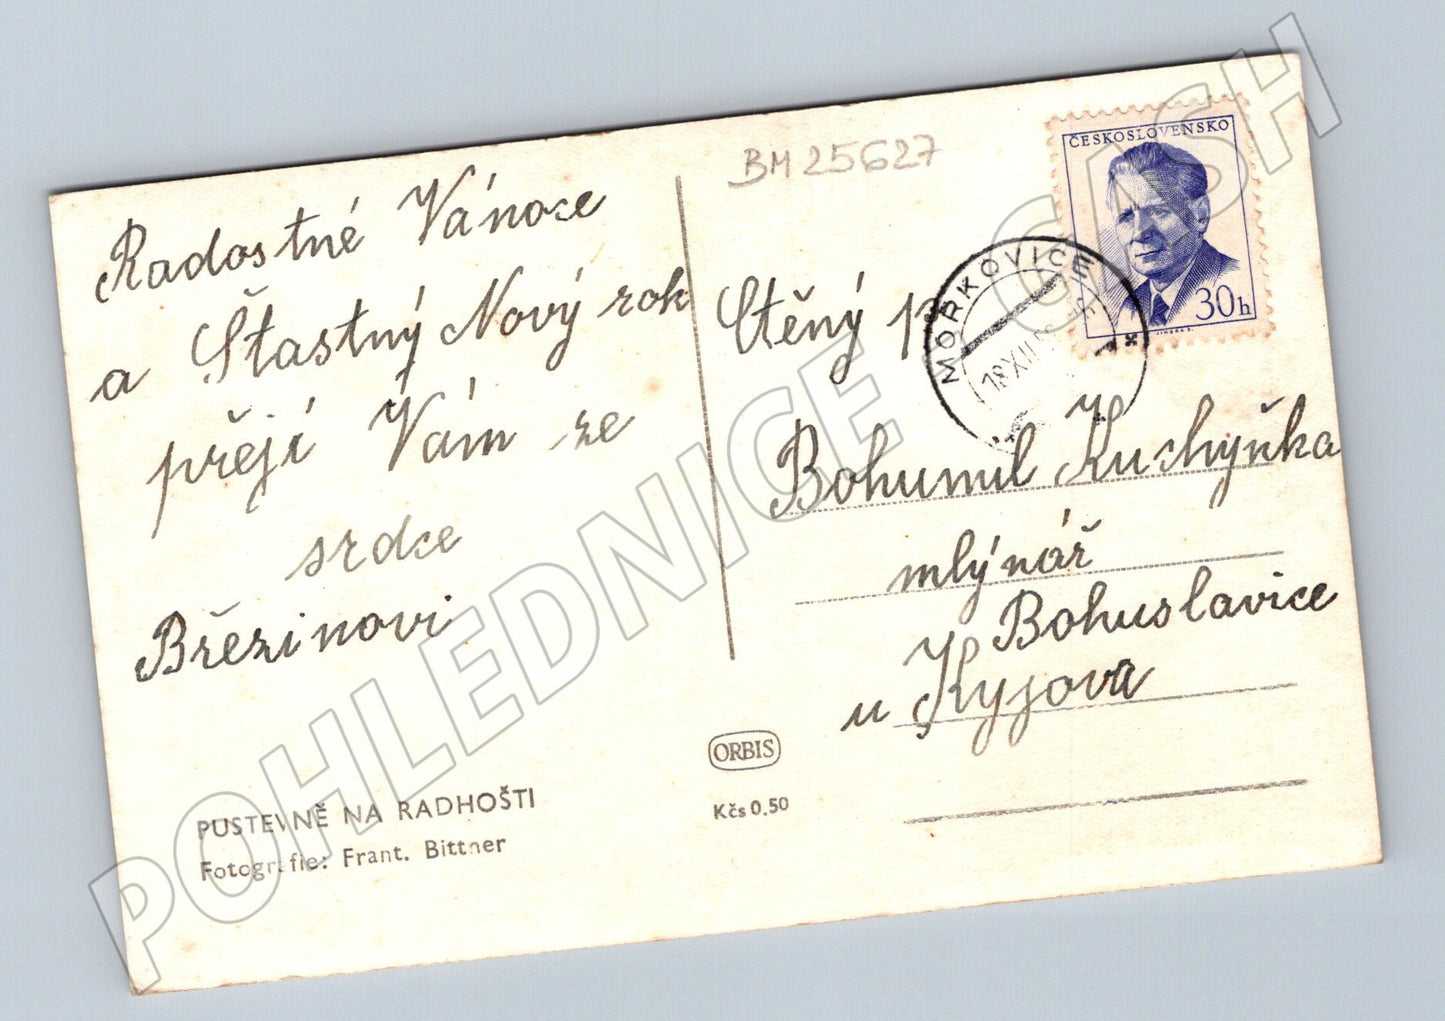 Radostné Vánoce
a Šťastný Nový rok
přejí Vám ze
srdce
Březinovi
PUSTEVNĚ NA RADHOŠTI
Fotografie: Frant. Bittner
BM 25627
ČESKOSLOVENSKO
30h
MORKOVICE
18.XII
Ctěný p.
Bohumil Kuchyňka
mlýnář
Bohuslavice
u Kyjova
ORBIS
Kčs 0,50
POHLEDNICE CASH